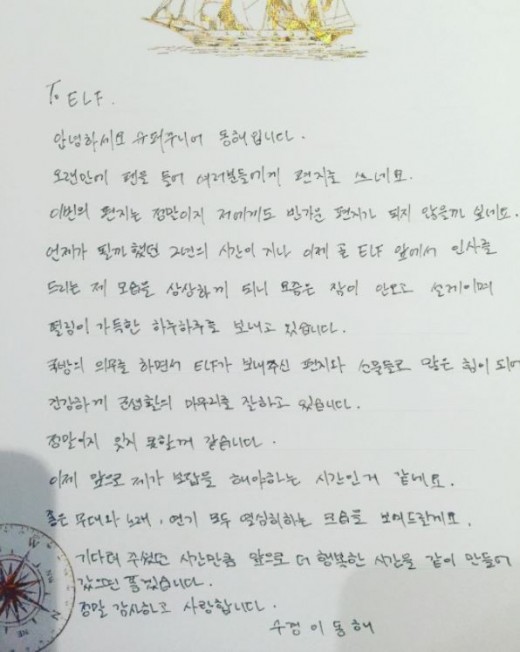 To ELF.
안녕하세요 슈퍼주니어 동해입니다.
오랜만에 펜을 들어 여러분들에게 편지를 쓰네요.
이번의 편지는 정말이지 저에게도 반가운 편지가 되지 않을까 싶네요.
언제가 될까 했던 2년의 시간이 지나 이제 곧 ELF 앞에서 인사를
드리는 제 모습을 상상하게 되니 요즘은 잠이 안오고 설게이며
떨림이 가득한 하루하루를 보내고 있습니다.
국방의 의무를 하면서 ELF가 보내주신 편지와 선물들로 많은 힘이 되어
건강하게 군생활의 마무리를 잘하고 있습니다.
정말이지 잊지 못할꺼 같습니다.
이제 앞으로 제가 보답을 해야하는 시간인거 같네요.
좋은 무대와 노래, 연기 모두 열심히하는 모습을 보여드릴게요.
기다려 주셨던 시간만큼 앞으로 더 행복한 시간을 같이 만들어
갔으면 좋겠습니다.
정말 감사하고 사랑합니다.
수경 이동해